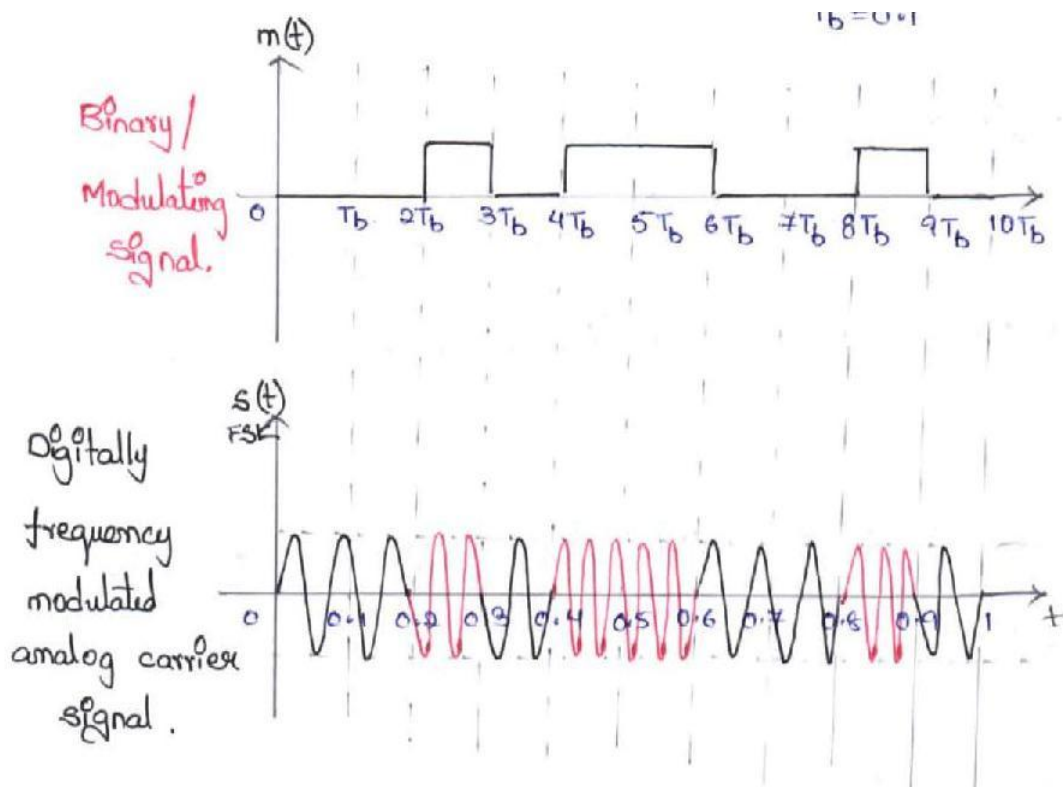 T_b = 0.1
m(t)
Binary/
Modulating
signal.
0 T_b 2T_b 3T_b 4T_b 5T_b 6T_b 7T_b 8T_b 9T_b 10T_b
s(t)
FSK
Digitally
frequency
modulated
analog carrier
signal.
0 0.1 0.2 0.3 0.4 0.5 0.6 0.7 0.8 0.9 1 t